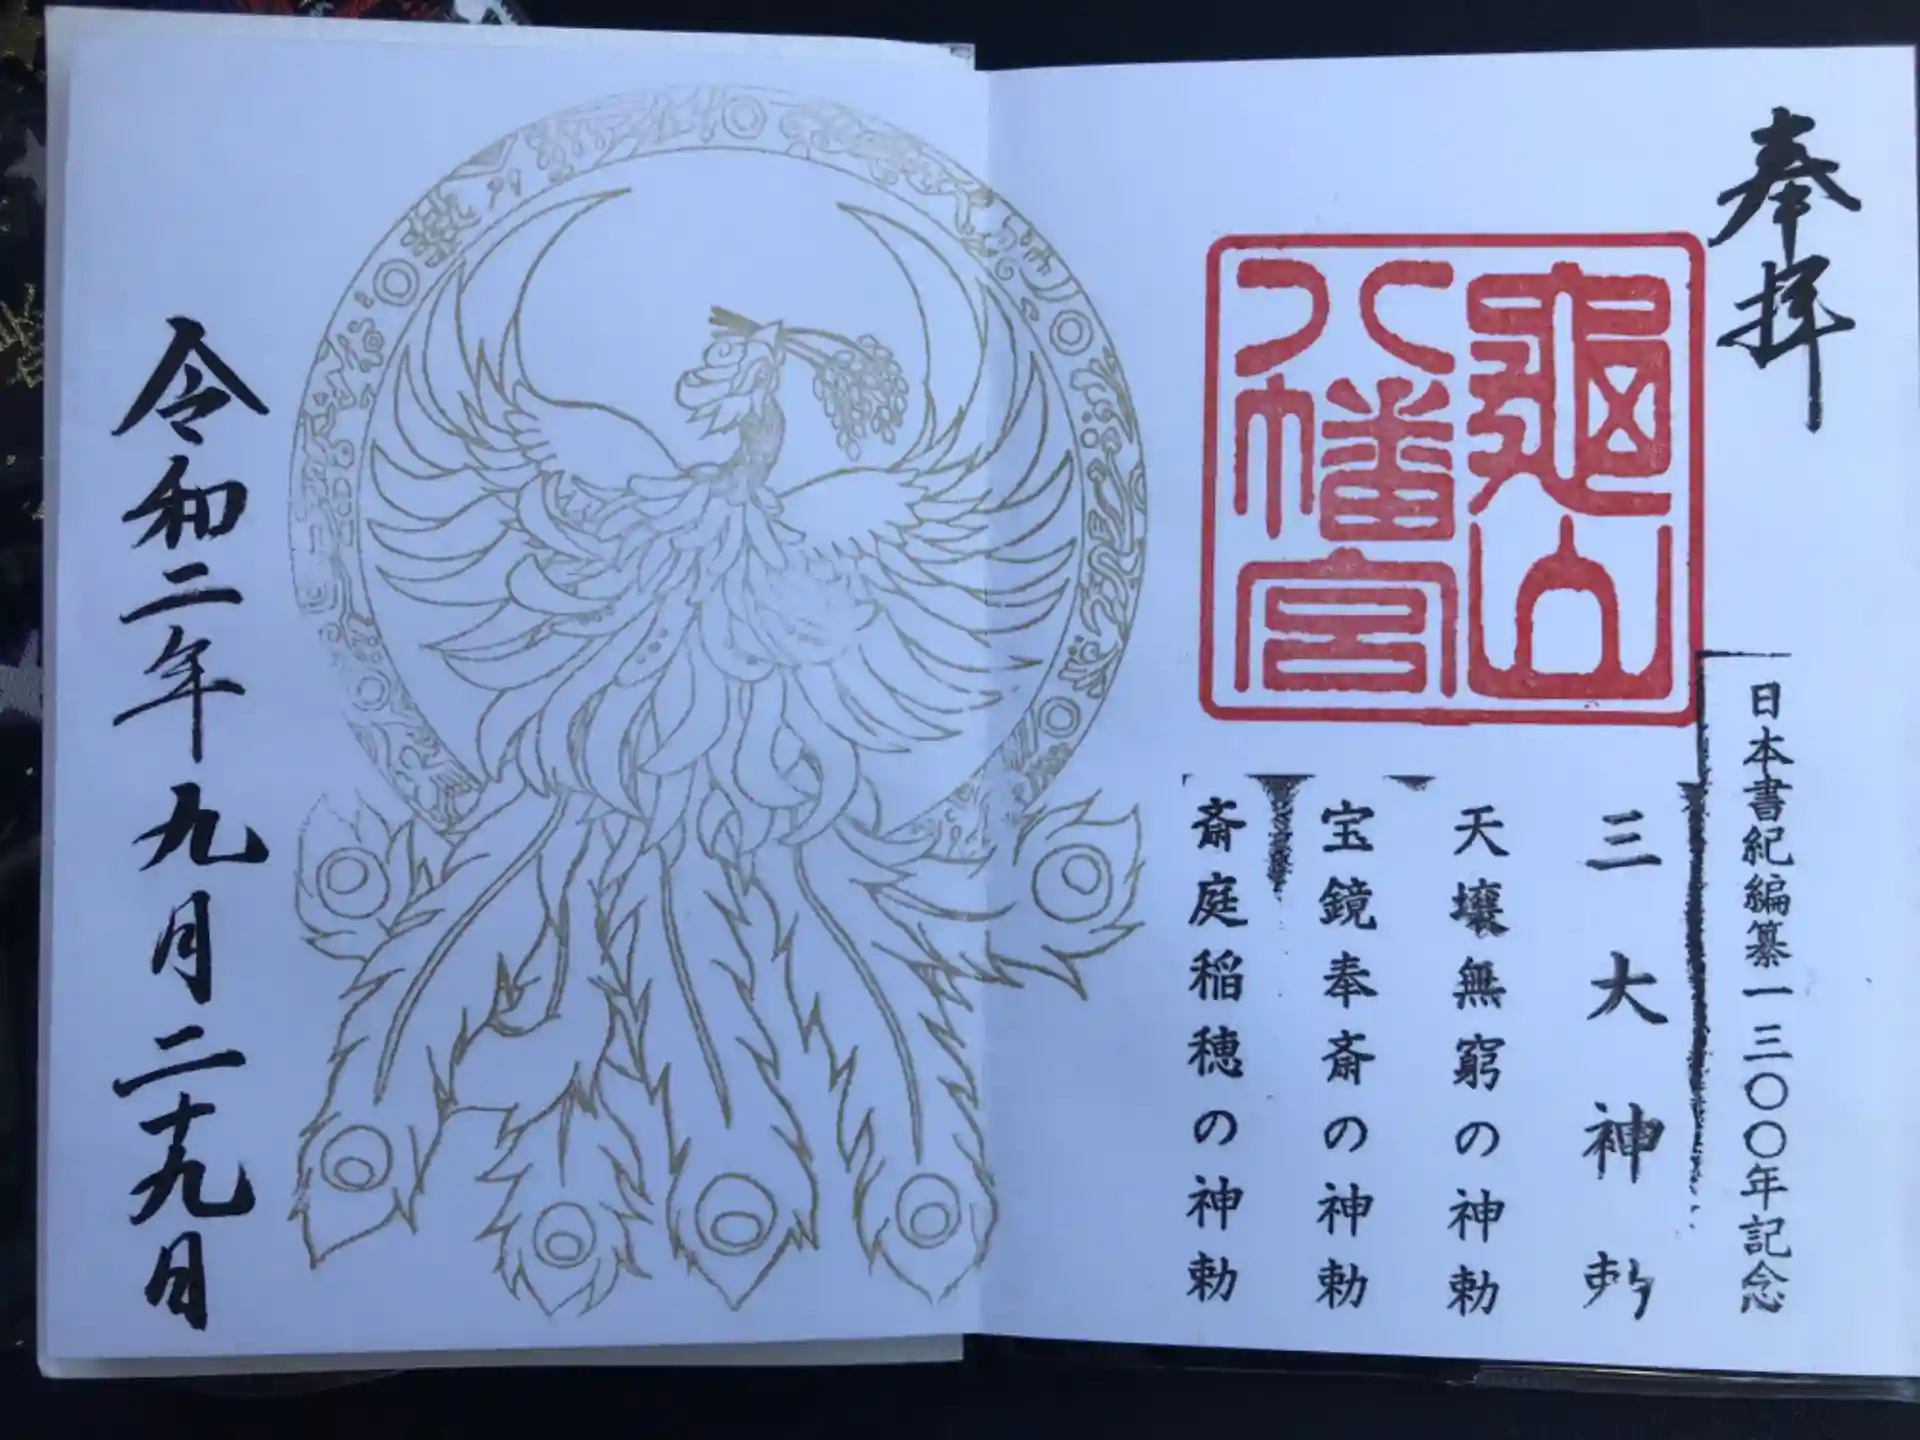 奉拝
亀山
八幡宮
日本書紀編纂一三〇〇年記念
三大神勅
天壌無窮の神勅
宝鏡奉斎の神勅
斎庭稲穂の神勅
令和二年九月二十九日